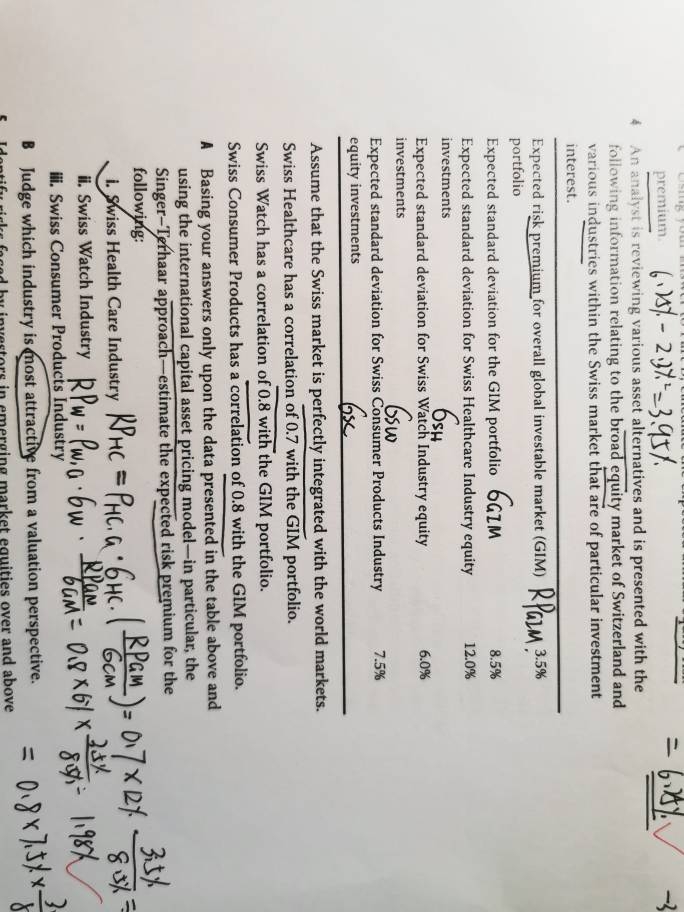 premium. 6.25% - 2.3% = 3.95%
= 6.25%
4 An analyst is reviewing various asset alternatives and is presented with the
following information relating to the broad equity market of Switzerland and
various industries within the Swiss market that are of particular investment
interest.
Expected risk premium for overall global investable market (GIM) RPGIM. 3.5%
portfolio
Expected standard deviation for the GIM portfolio 6GIM 8.5%
Expected standard deviation for Swiss Healthcare Industry equity 12.0%
investments 6SH
Expected standard deviation for Swiss Watch Industry equity 6.0%
investments 6SW
Expected standard deviation for Swiss Consumer Products Industry 7.5%
equity investments 6SC
Assume that the Swiss market is perfectly integrated with the world markets.
Swiss Healthcare has a correlation of 0.7 with the GIM portfolio.
Swiss Watch has a correlation of 0.8 with the GIM portfolio.
Swiss Consumer Products has a correlation of 0.8 with the GIM portfolio.
A Basing your answers only upon the data presented in the table above and
using the international capital asset pricing model—in particular, the
Singer–Terhaar approach—estimate the expected risk premium for the
following:
i. Swiss Health Care Industry RPHC = PHC,G · 6HC · (RPGM/6GM) = 0.7 × 12% · 3.5%/8.5% =
ii. Swiss Watch Industry RPW = PW,G · 6W · RPGM/6GM = 0.8 × 6% × 3.5%/8.5% = 1.98%
iii. Swiss Consumer Products Industry
= 0.8 × 7.5% ×
B Judge which industry is most attractive from a valuation perspective.
5 Identify risks faced by investors in emerging market equities over and above